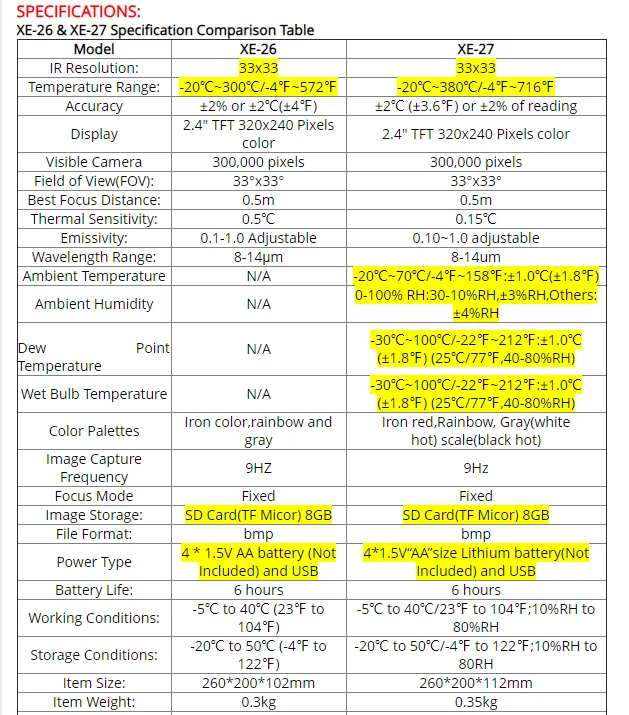 SPECIFICATIONS:
XE-26 & XE-27 Specification Comparison Table
Model XE-26 XE-27
IR Resolution: 33x33 33x33
Temperature Range: -20℃~300℃/-4℉~572℉ -20℃~380℃/-4℉~716℉
Accuracy ±2% or ±2℃(±4℉) ±2℃ (±3.6℉) or ±2% of reading
Display 2.4" TFT 320x240 Pixels color 2.4" TFT 320x240 Pixels color
Visible Camera 300,000 pixels 300,000 pixels
Field of View(FOV): 33°x33° 33°x33°
Best Focus Distance: 0.5m 0.5m
Thermal Sensitivity: 0.5℃ 0.15℃
Emissivity: 0.1-1.0 Adjustable 0.10~1.0 adjustable
Wavelength Range: 8-14μm 8-14um
Ambient Temperature N/A -20℃~70℃/-4℉~158℉:±1.0℃(±1.8℉)
Ambient Humidity N/A 0-100% RH:30-10%RH,±3%RH,Others: ±4%RH
Dew Point Temperature N/A -30℃~100℃/-22℉~212℉:±1.0℃ (±1.8℉) (25℃/77℉,40-80%RH)
Wet Bulb Temperature N/A -30℃~100℃/-22℉~212℉:±1.0℃ (±1.8℉) (25℃/77℉,40-80%RH)
Color Palettes Iron color,rainbow and gray Iron red,Rainbow, Gray(white hot) scale(black hot)
Image Capture Frequency 9HZ 9Hz
Focus Mode Fixed Fixed
Image Storage: SD Card(TF Micor) 8GB SD Card(TF Micor) 8GB
File Format: bmp bmp
Power Type 4 * 1.5V AA battery (Not Included) and USB 4*1.5V“AA”size Lithium battery(Not Included) and USB
Battery Life: 6 hours 6 hours
Working Conditions: -5℃ to 40℃ (23℉ to 104℉) -5℃ to 40℃/23℉ to 104℉;10%RH to 80%RH
Storage Conditions: -20℃ to 50℃ (-4℉ to 122℉) -20℃ to 50℃/-4℉ to 122℉;10%RH to 80RH
Item Size: 260*200*102mm 260*200*112mm
Item Weight: 0.3kg 0.35kg